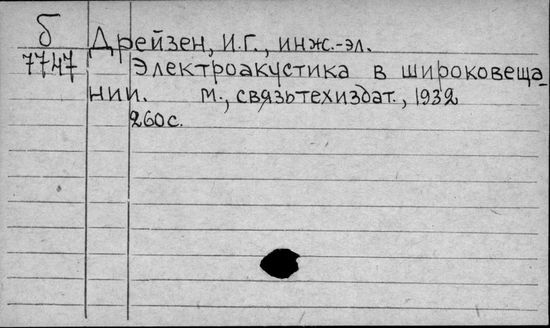 Б
7747
Дрейзен, И.Г., инж.-эл.
Электроакустика в широковеща-
нии. М., связьтехиздат., 1932
260с.